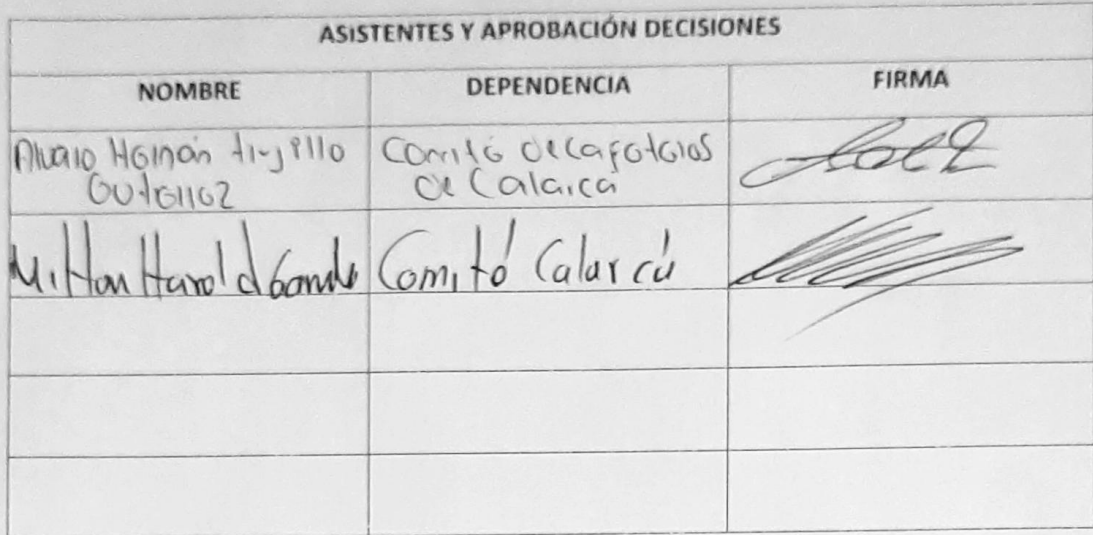 ASISTENTES Y APROBACIÓN DECISIONES
NOMBRE DEPENDENCIA FIRMA
Alvaro Hernán Trujillo Comité de cafeteros
Gutierrez de Calarcá
Milton Harold Comité Calarcá